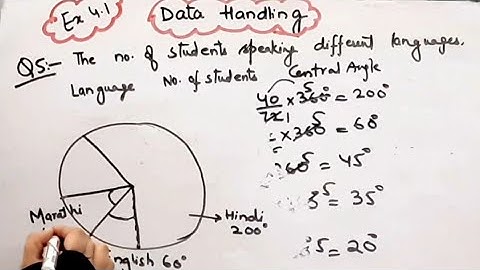 Ex 4.1
Data Handling
Q5:- The no. of students speaking different languages.
Language No. of students Central Angle
40/72 × 360° = 200°
× 360° = 60°
60° = 45°
= 35°
= 20°
Marathi
Hindi
200°
English 60°